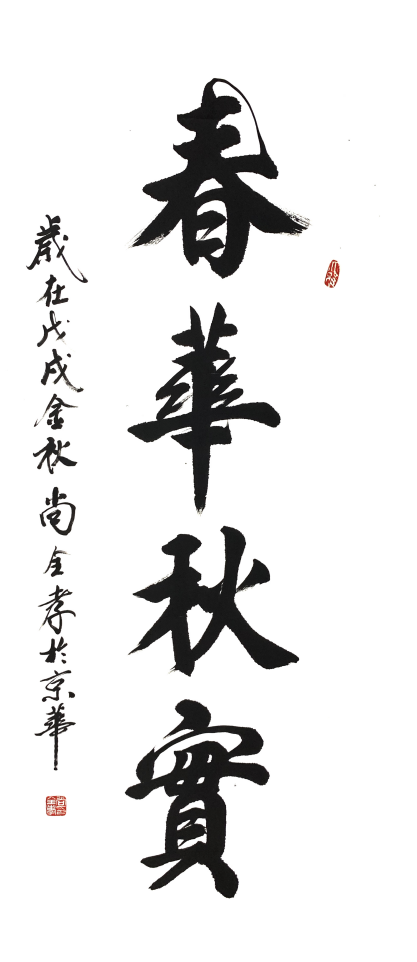 春華秋實
歲在戊戌金秋尚全孝於京華